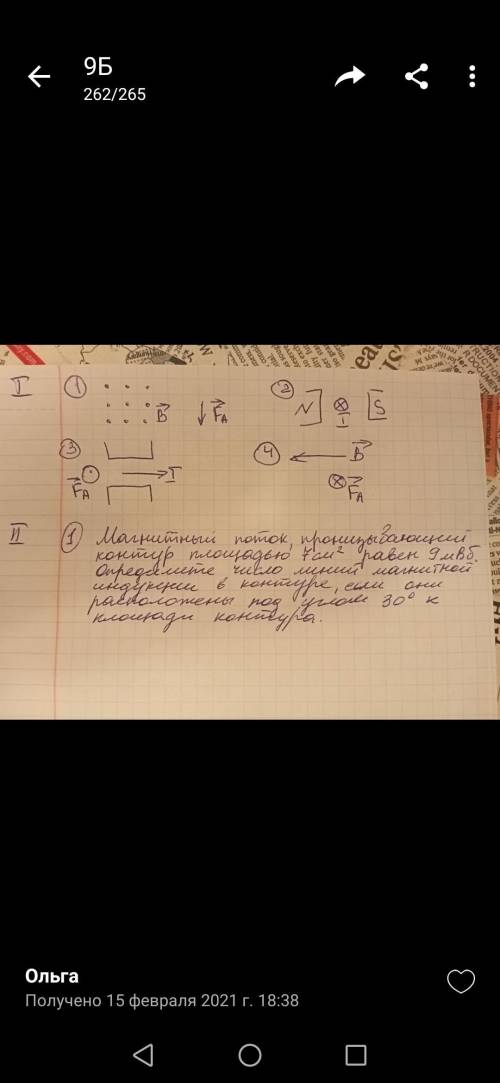 9Б
262/265
I ① B⃗ F⃗A ② N I S
③ F⃗A I ④ B⃗ F⃗A
II ① Магнитный поток, пронизывающий
контур площадью 7см² равен 9мВб.
Определите число линий магнитной
индукции в контуре, если они
расположены под углом 30° к
площади контура.
Ольга
Получено 15 февраля 2021 г. 18:38